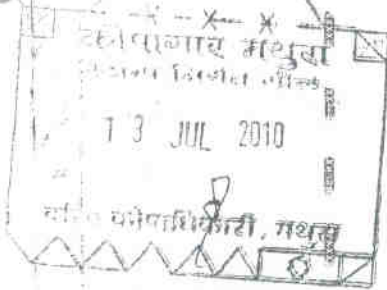 कोषागार मथुरा
13 JUL 2010
वरिष्ठ कोषाधिकारी, मथुरा